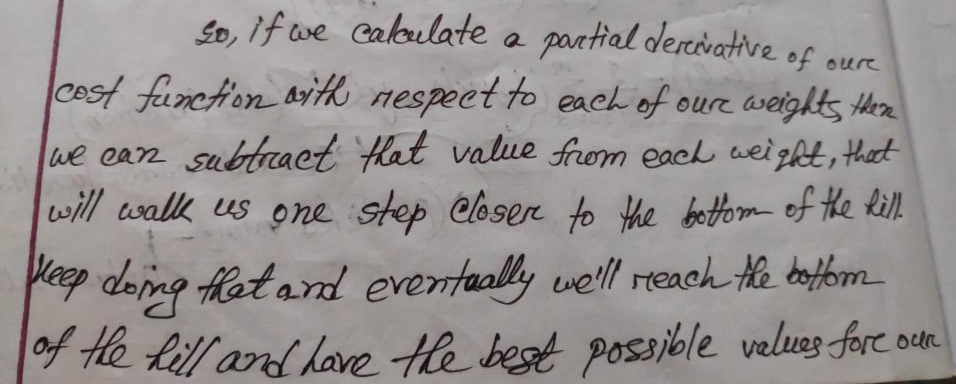 So, if we calculate a partial derivative of our
cost function with respect to each of our weights, then
we can subtract that value from each weight, that
will walk us one step closer to the bottom of the hill.
Keep doing that and eventually we'll reach the bottom
of the hill and have the best possible values for our